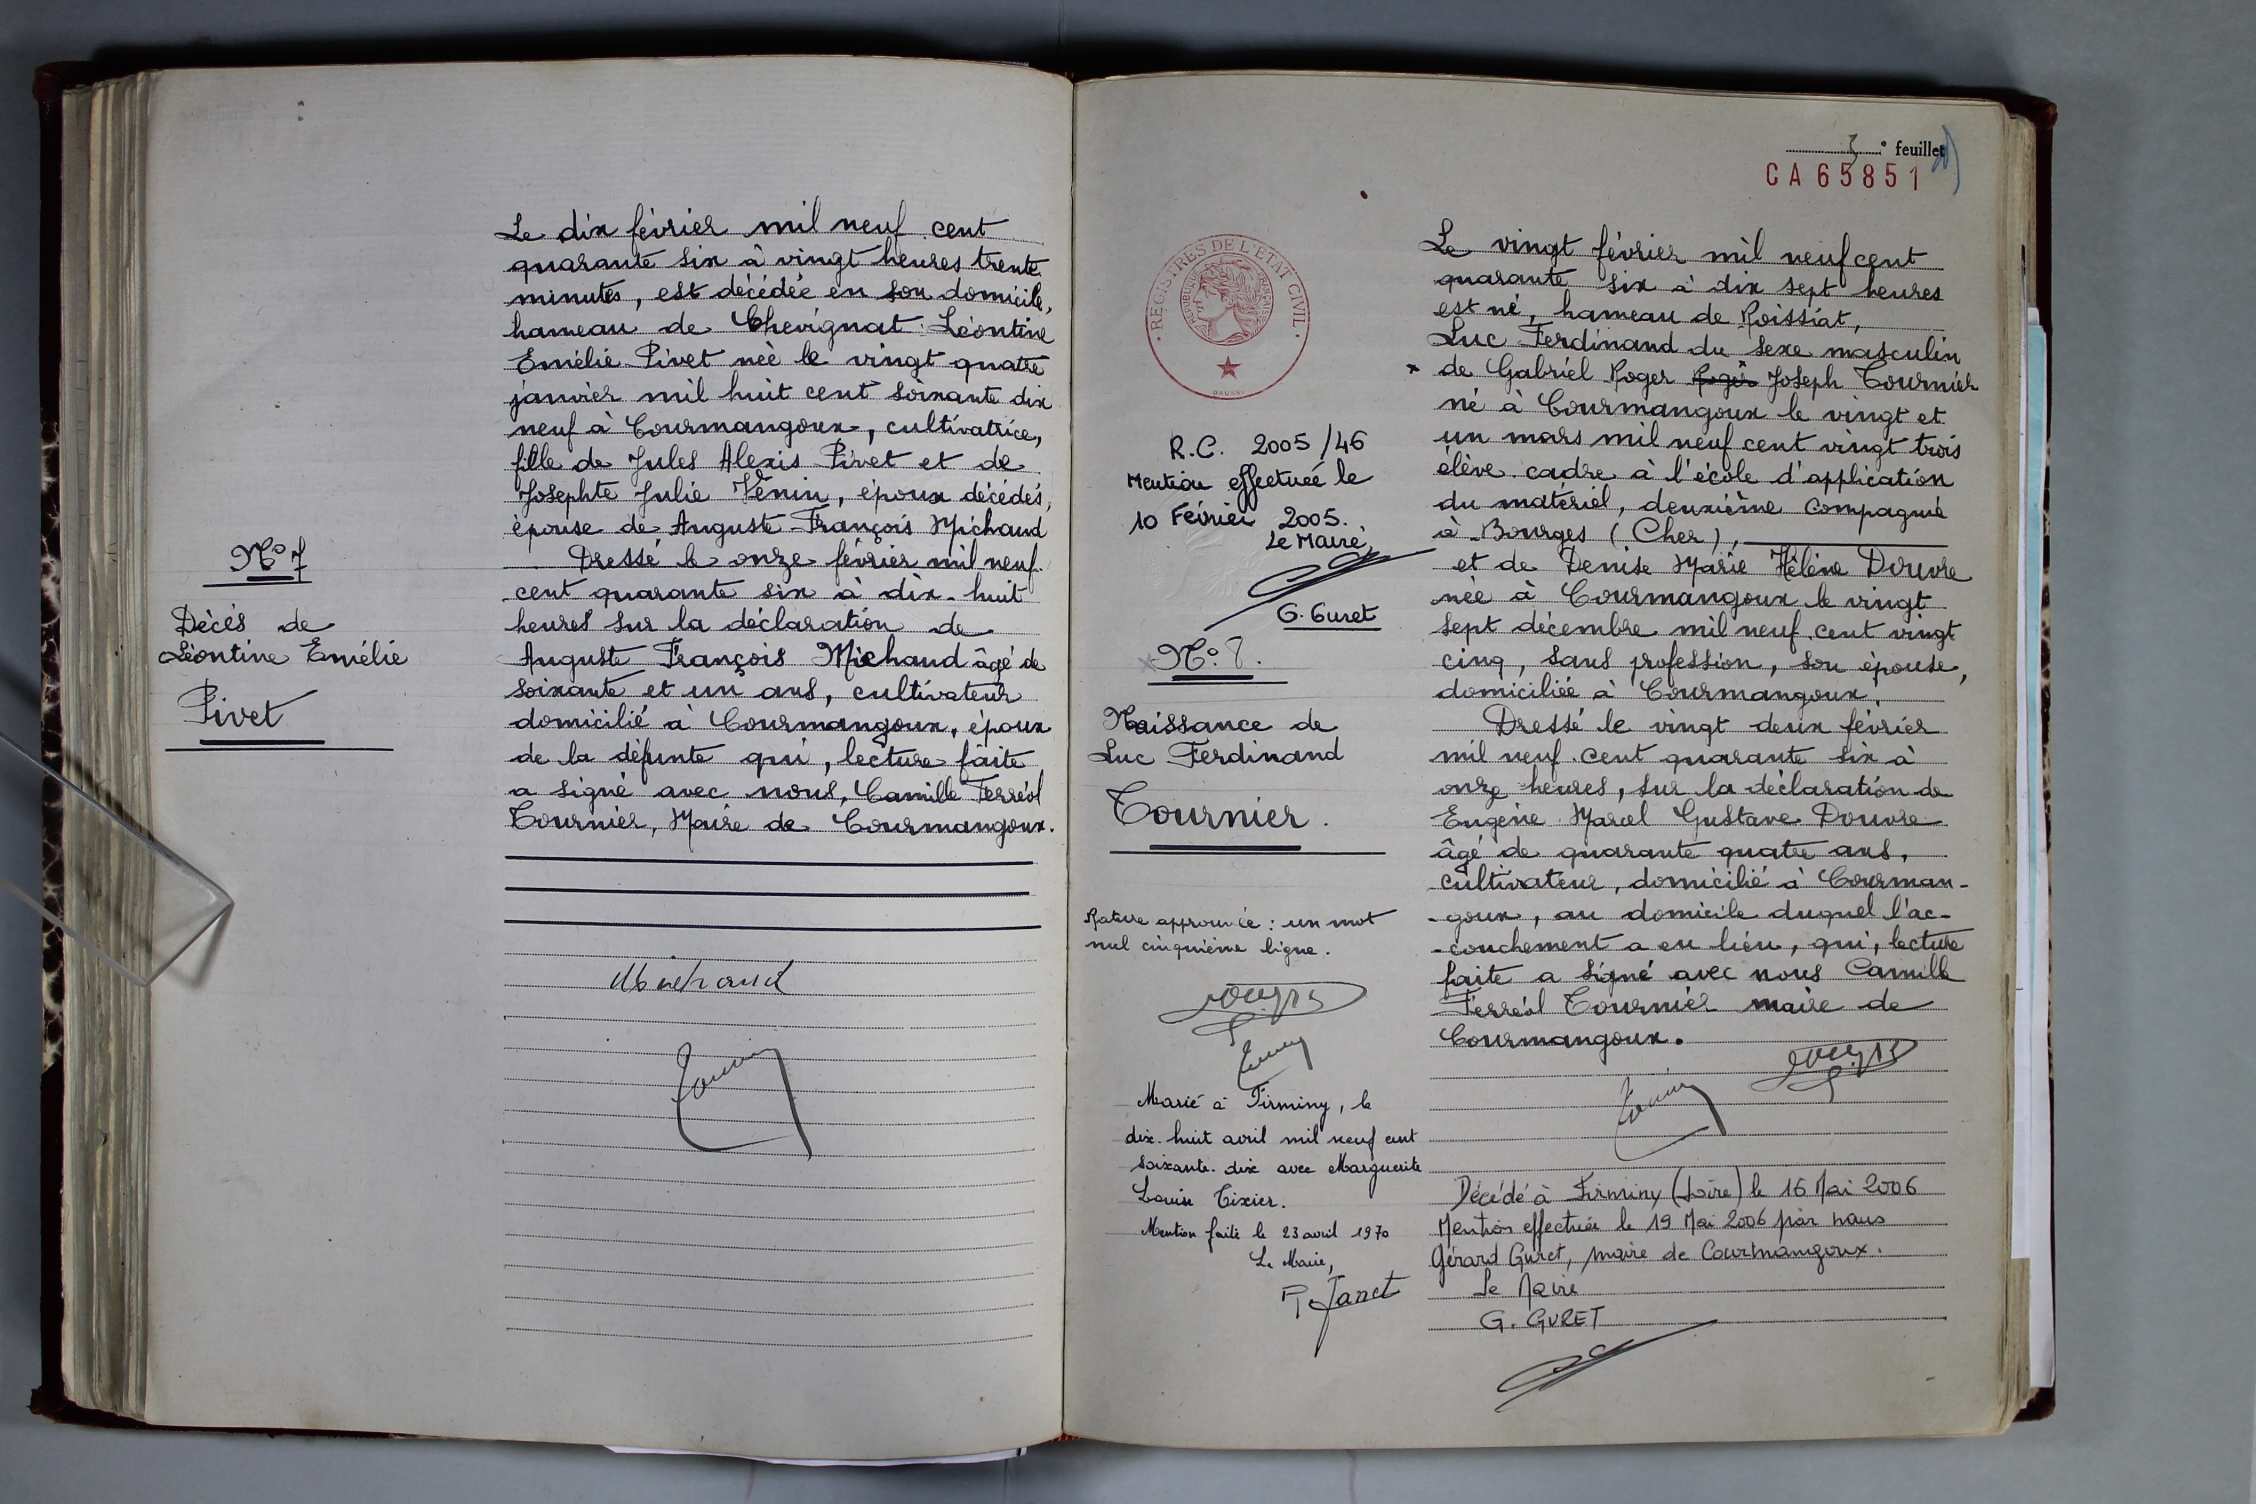 Le dix février mil neuf cent
quarante six à vingt heures trente
minutes, est décédée en son domicile,
hameau de Chevignat Léontine
Emélie Pivet née le vingt quatre
janvier mil huit cent soixante dix
neuf à Courmangoux, cultivatrice,
fille de Jules Alexis Pivet et de
Josephte Julie Vénin, époux décédés,
épouse de Auguste François Michaud
Dressé le onze février mil neuf
cent quarante six à dix-huit
heures sur la déclaration de
Auguste François Michaud âgé de
soixante et un ans, cultivateur
domicilié à Courmangoux, époux
de la défunte qui, lecture faite
a signé avec nous, Camille Ferréol
Tournier, Maire de Courmangoux.
N° 7
Décès de
Léontine Emélie
Pivet
Michaud
3° feuillet
CA 65851
REGISTRES DE L'ETAT CIVIL
REPUBLIQUE FRANÇAISE
R.C. 2005/46
Mention effectuée le
10 Février 2005.
Le Maire,
G. Guret
N° 8.
Naissance de
Luc Ferdinand
Tournier.
Rature approuvée : un mot
nul cinquième ligne.
Marié à Firminy, le
dix-huit avril mil neuf cent
soixante-dix avec Marguerite
Louise Tixier.
Mention faite le 23 avril 1970
Le Maire,
P. Janet
Le vingt février mil neuf cent
quarante six à dix sept heures
est né, hameau de Roissiat,
Luc Ferdinand du sexe masculin
x de Gabriel Roger Roger Joseph Tournier
né à Courmangoux le vingt et
un mars mil neuf cent vingt trois
élève cadre à l'école d'application
du matériel, deuxième compagnie
à Bourges (Cher),
et de Denise Marie Hélène Douvre
née à Courmangoux le vingt
sept décembre mil neuf cent vingt
cinq, sans profession, son épouse,
domiciliée à Courmangoux.
Dressé le vingt deux février
mil neuf cent quarante six à
onze heures, sur la déclaration de
Eugène Marcel Gustave Douvre
âgé de quarante quatre ans,
cultivateur, domicilié à Courman-
-goux, au domicile duquel l'ac-
-couchement a eu lieu, qui, lecture
faite a signé avec nous Camille
Ferréol Tournier maire de
Courmangoux.
Décédé à Firminy (Loire) le 16 Mai 2006
Mention effectuée le 19 Mai 2006 par nous
Gérard Guret, maire de Courmangoux.
Le Maire
G. GURET